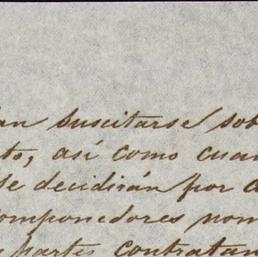 an suscitarse sob
to, así como cuan
se decidirán por a
componedores nom
partes contratan